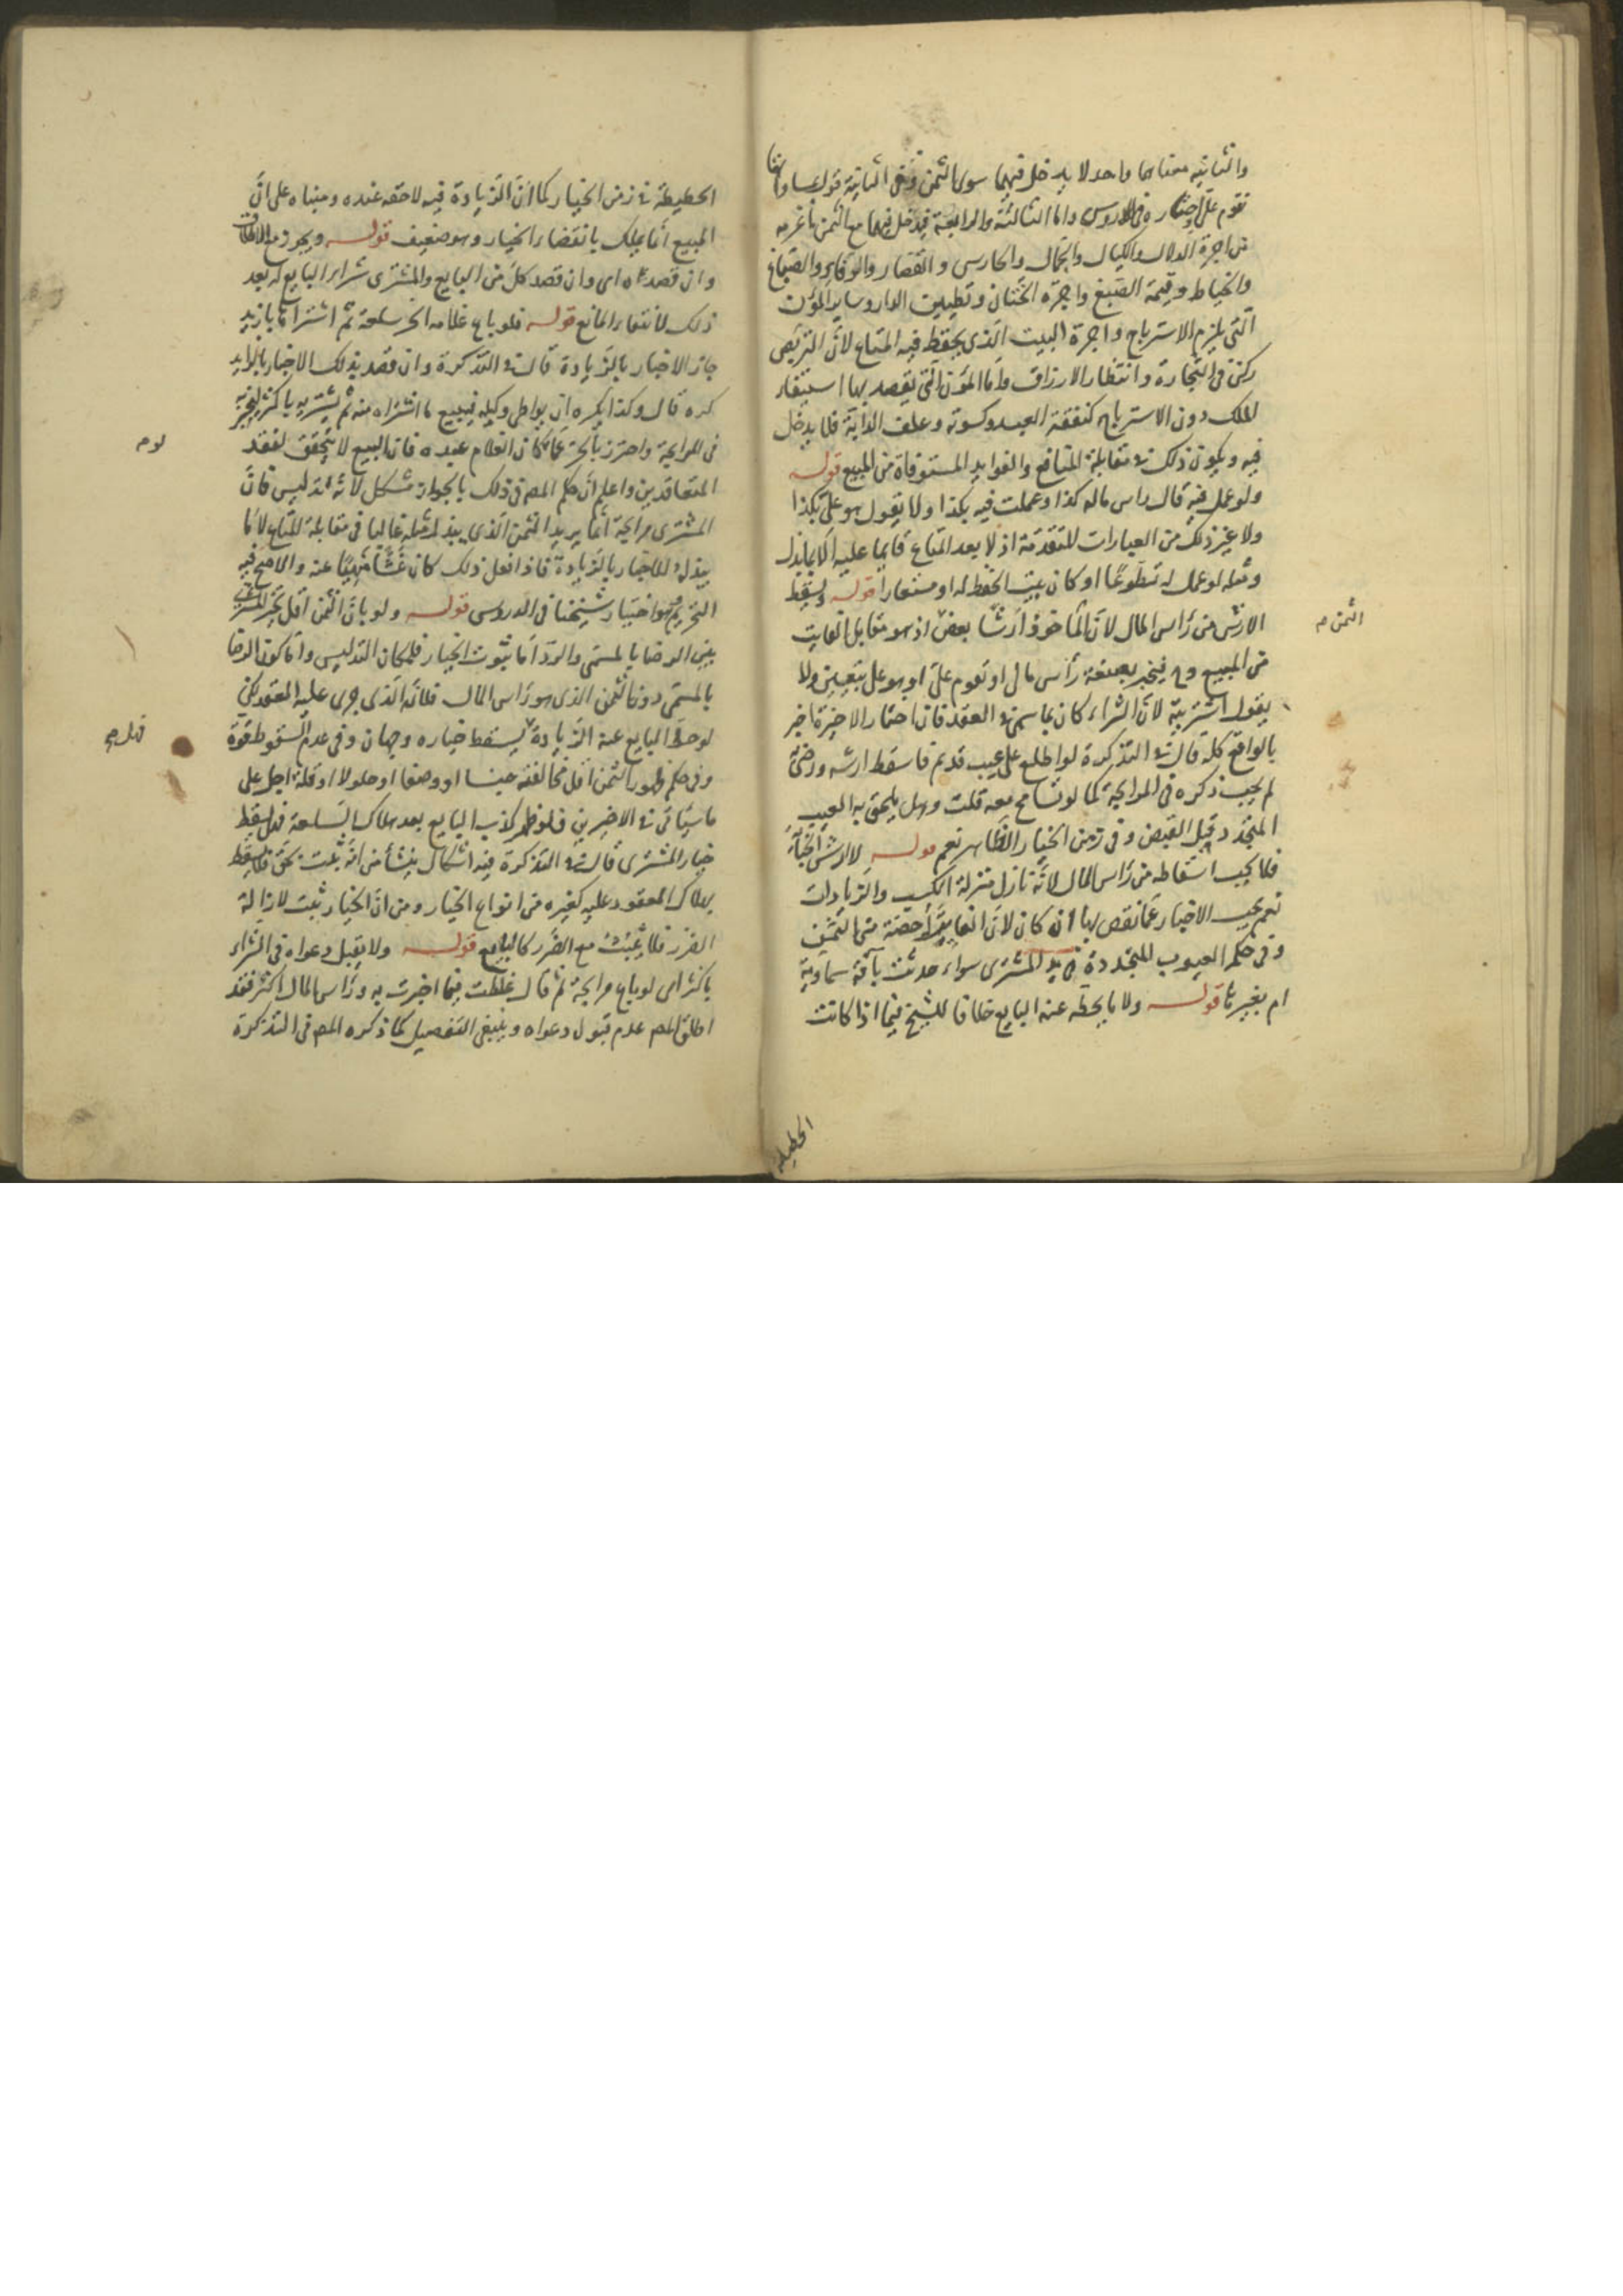 والثانيه معناها واحد لا يدخل فيهما سوى الثمن وفى الثانية قول بمساواتها
تقوم علىّ اختاره فى الدروس واما الثالثة والرابعة فيدخل فيهما مع الثمن ما غرمه
من اجرة الدلال والكيال والجمال والحارس والقصار والرفاء والصباغ
والخياط وقيمة الصبغ واجرة الختان وتطيين الدار وساير المؤن
التى يلزم الاسترباح واجرة البيت الذى يحفظ فيه المتاع لان التربص
ركن فى التجارة وانتظار الارزاق واما المؤن التى يقصد بها استبقاء
الملك دون الاسترباح كنفقة العبد وكسوته وعلف الدابة فلا يدخل
فيه ويكون ذلك فى مقابلة المنافع والفوايد المستوفاة من المبيع قوله
ولو عمل فيه قال راس ماله كذا وعملت فيه بكذا ولا يقول هو علىّ بكذا
ولا غير ذلك من العبارات المتقدمة اذ لا يعد المتاع قايما عليه الا بما بذل
ومثله لو عمل له تطوعا او كان بيت الحفظ له او مستعارا قوله ويسقط
الارش من رأس المال لان المأخوذ ارشا بعض اذ هو مقابل الفايت
الثمن صح
من المبيع وح فيخبر بصيغة رأس مالى او تقوم علىّ او هو علىّ بتعيين ولا
يقول اشتريته لان الشراء كان بما سمى فى العقد فان احتار الاخيرة اخبر
بالواقع كله قال فى التذكرة لو اطلع على عيب قديم فاسقط ارشه ورضى به
لم يجب ذكره فى المرابحة كما لو تسامح معه قلت وهل يلحق به العيب
المتجدد قبل القبض وفى زمن الخيار الظاهر نعم قوله لا ارش الجناية
فلا يجب اسقاطه من رأس المال لانه نازل منزلة الكسب والزيادات
نعم يجب الاخبار عما نقص بها ان كان لان الفايت له حصة من الثمن
وفى حكم العيوب المتجددة فى يد المشترى سواء حدثت بآفة سماوية
ام بغيرها قوله ولا ما يحطه عنه البايع خلافا للشيخ فيما اذا كانت
الحطيطه
الحطيطة فى زمن الخيار كما ان الزيادة فيه لاحقه عنده ومبناه على انّ
المبيع انما يملك بانقضاء الخيار وهو ضعيف قوله ويجوز مع الاطلاق
وان قصداه اى وان قصد كل من البايع والمشترى شراء البايع له بعد
ذلك لانتفاء المانع قوله فلو باع غلامه الحر سلعة ثم اشتراها بازيد
جاز الاخبار بالزيادة قال فى التذكرة وان قصد بذلك الاخبار بالزايد
كره قال وكذا يكره ان يواطى وكيله فيبيع ما اشتراه منه ثم يشتريه باكثر ليخبر به
فى المرابحة واحترز بالحر عما لو كان الغلام عبده فان البيع لا يتحقق لفقد
المتعاقدين واعلم ان حكم المصه فى ذلك بالجواز مشكل لانه تدليس فان
المشترى مرابحة انما يريد الثمن الذى يبذل مثله غالبا فى مقابلة المتاع لا ما
يبذل للاخبار بالزيادة فاذا فعل ذلك كان غشا منهيا عنه والاصح فيه
التحريم وهو اختيار شيخنا فى الدروس قوله ولو بان الثمن اقل تخير المشترى
بين الرضا بالمسمى والرد اما ثبوت الخيار فلمكان التدليس واما كون الرضا
بالمسمى دون الثمن الذى هو رأس المال فلانه الذى جرى عليه العقد لكن
لو حط البايع عنه الزيادة يسقط خياره وجهان وفى عدم السقوط قوة
فهل صح
وفى حكم ظهور الثمن اقل مخالفته جنسا او وصفا او حلولا او قلة اجل على
ما سيأتى فى الاخيرين فلو ظهر كذب البايع بعد هلاك السلعة فهل يسقط
خيار المشترى قال فى التذكرة فيه اشكال ينشأ من انه يثبت بحق فلا يسقط
بهلاك المعقود عليه كغيره من انواع الخيار ومن ان الخيار ثبت لازالة
الضرر فلا يثبت مع الضرر كالبايع قوله ولا يقبل دعواه فى الشراء
باكثر اى لو باع مرابحة ثم قال غلطت فيما اخبرت به ورأس المال اكثر فقد
اطلق المصه عدم قبول دعواه وينبغى التفصيل كما ذكره المصه فى التذكرة